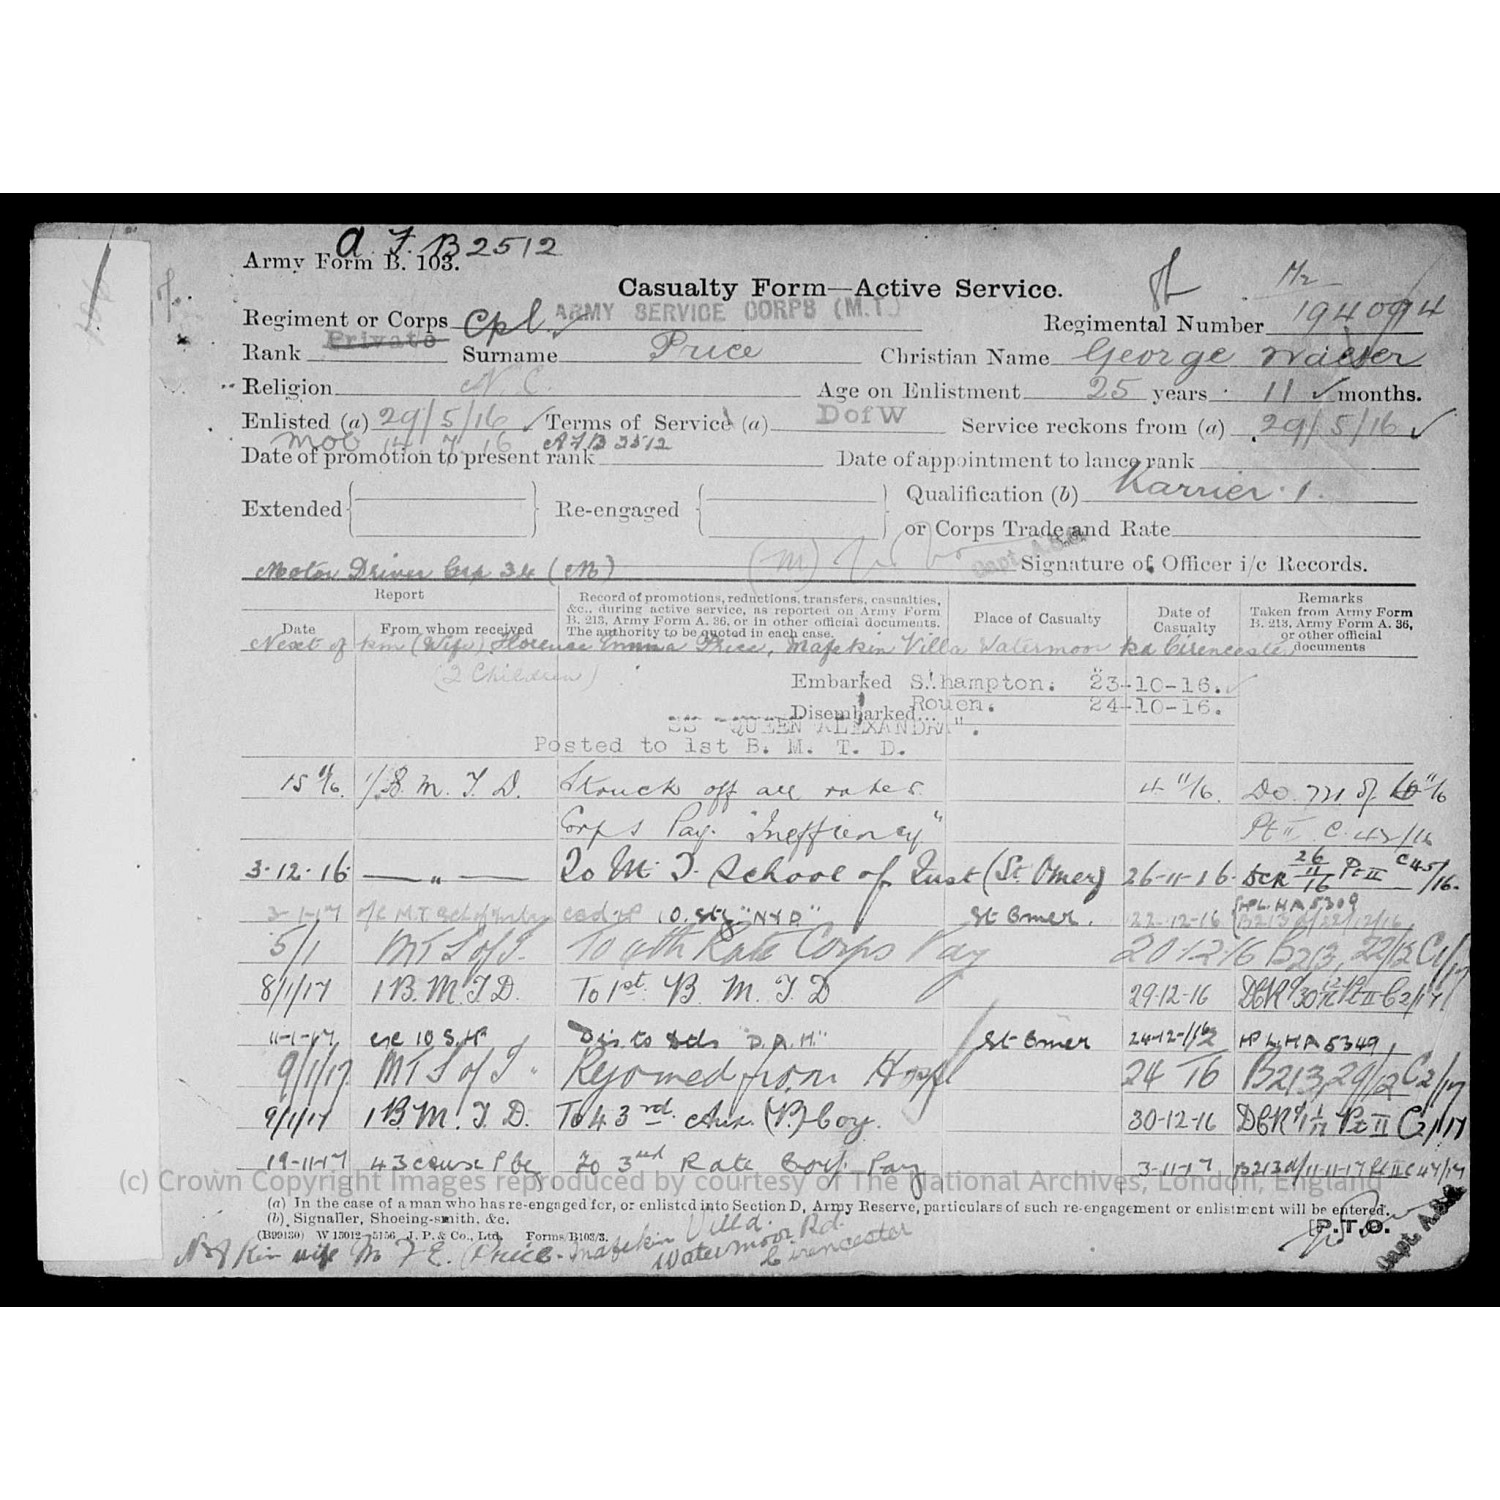 a. F. B 2512
Army Form B. 103.
Casualty Form—Active Service.
Regiment or Corps Cpl. ARMY SERVICE CORPS (M.T.) Regimental Number M2 194094
Rank Private Surname Price Christian Name George Walter
Religion N. C. Age on Enlistment 25 years 11 months.
Enlisted (a) 29/5/16 Terms of Service (a) DofW Service reckons from (a) 29/5/16
Mob 14 7 16 AFB 2512
Date of promotion to present rank Date of appointment to lance rank
Extended Re-engaged Qualification (b) Karrier 1.
or Corps Trade and Rate
(M) Capt. A.S.C.
Motor Driver Grp 34 (M) Signature of Officer i/c Records.
Report
Date From whom received
Record of promotions, reductions, transfers, casualties, &c., during active service, as reported on Army Form B. 213, Army Form A. 36, or in other official documents. The authority to be quoted in each case.
Place of Casualty
Date of Casualty
Remarks Taken from Army Form B. 213, Army Form A. 36, or other official documents
Next of kin (Wife) Florence Emma Price, Mafekin Villa Watermoor Rd Cirencester
(2 Children)
Embarked S.hampton. 23-10-16.
Disembarked... Rouen. 24-10-16.
SS "QUEEN ALEXANDRA".
Posted to 1st B. M. T. D.
15 11/16. 1/B. M. T. D. Struck off all rates 4 11/16. Do. 771 of 10 11/16
Corps Pay. "Ineffiency" Pt II C. 43/16
3-12-16 — " — To M. T. School of Inst (St. Omer) 26-11-16. DCR 26/11/16 Pt II C45/16.
3-1-17 o/c M.T. Sch of Instr 10. Sty "NYD" St Omer. 22-12-16 HPL.HA5309 B213 d/22/12/16
5/1 MT S of I. To 4th Rate Corps Pay 20-12-16 B213, 22/12 C1/17
8/1/17 1 B. M. T. D. To 1st. B. M. T. D 29-12-16 DCR 30/12/16 Pt II C2/17
11-1-17 o/c 10 S.H Dis. to Bds "D.A.H" St Omer 24-12-16 HPL.HA5349,
9/1/17 MT S of I. Rejoined from Hospl 24 16 B213, 29/12 C2/17
9/1/17 1 B. M. T. D. To 43rd. Aux. (P.) Coy. 30-12-16 DCR 1/1/17 Pt II C2/17
19-11-17 43 Caux P by To 3rd Rate Corps Pay 3-11-17 B213 d/11-11-17 Pt II C47/17
(c) Crown Copyright Images reproduced by courtesy of The National Archives, London, England
(a) In the case of a man who has re-engaged for, or enlisted into Section D, Army Reserve, particulars of such re-engagement or enlistment will be entered.
(b) Signaller, Shoeing-smith, &c. [P.T.O.
(B99130) W 15012—5156 J. P. & Co., Ltd. Forms/B103/3.
N of Kin wife M F E. Price. Mafekin Villa. Capt. A.S.C.
Watermoor Rd.
Cirencester